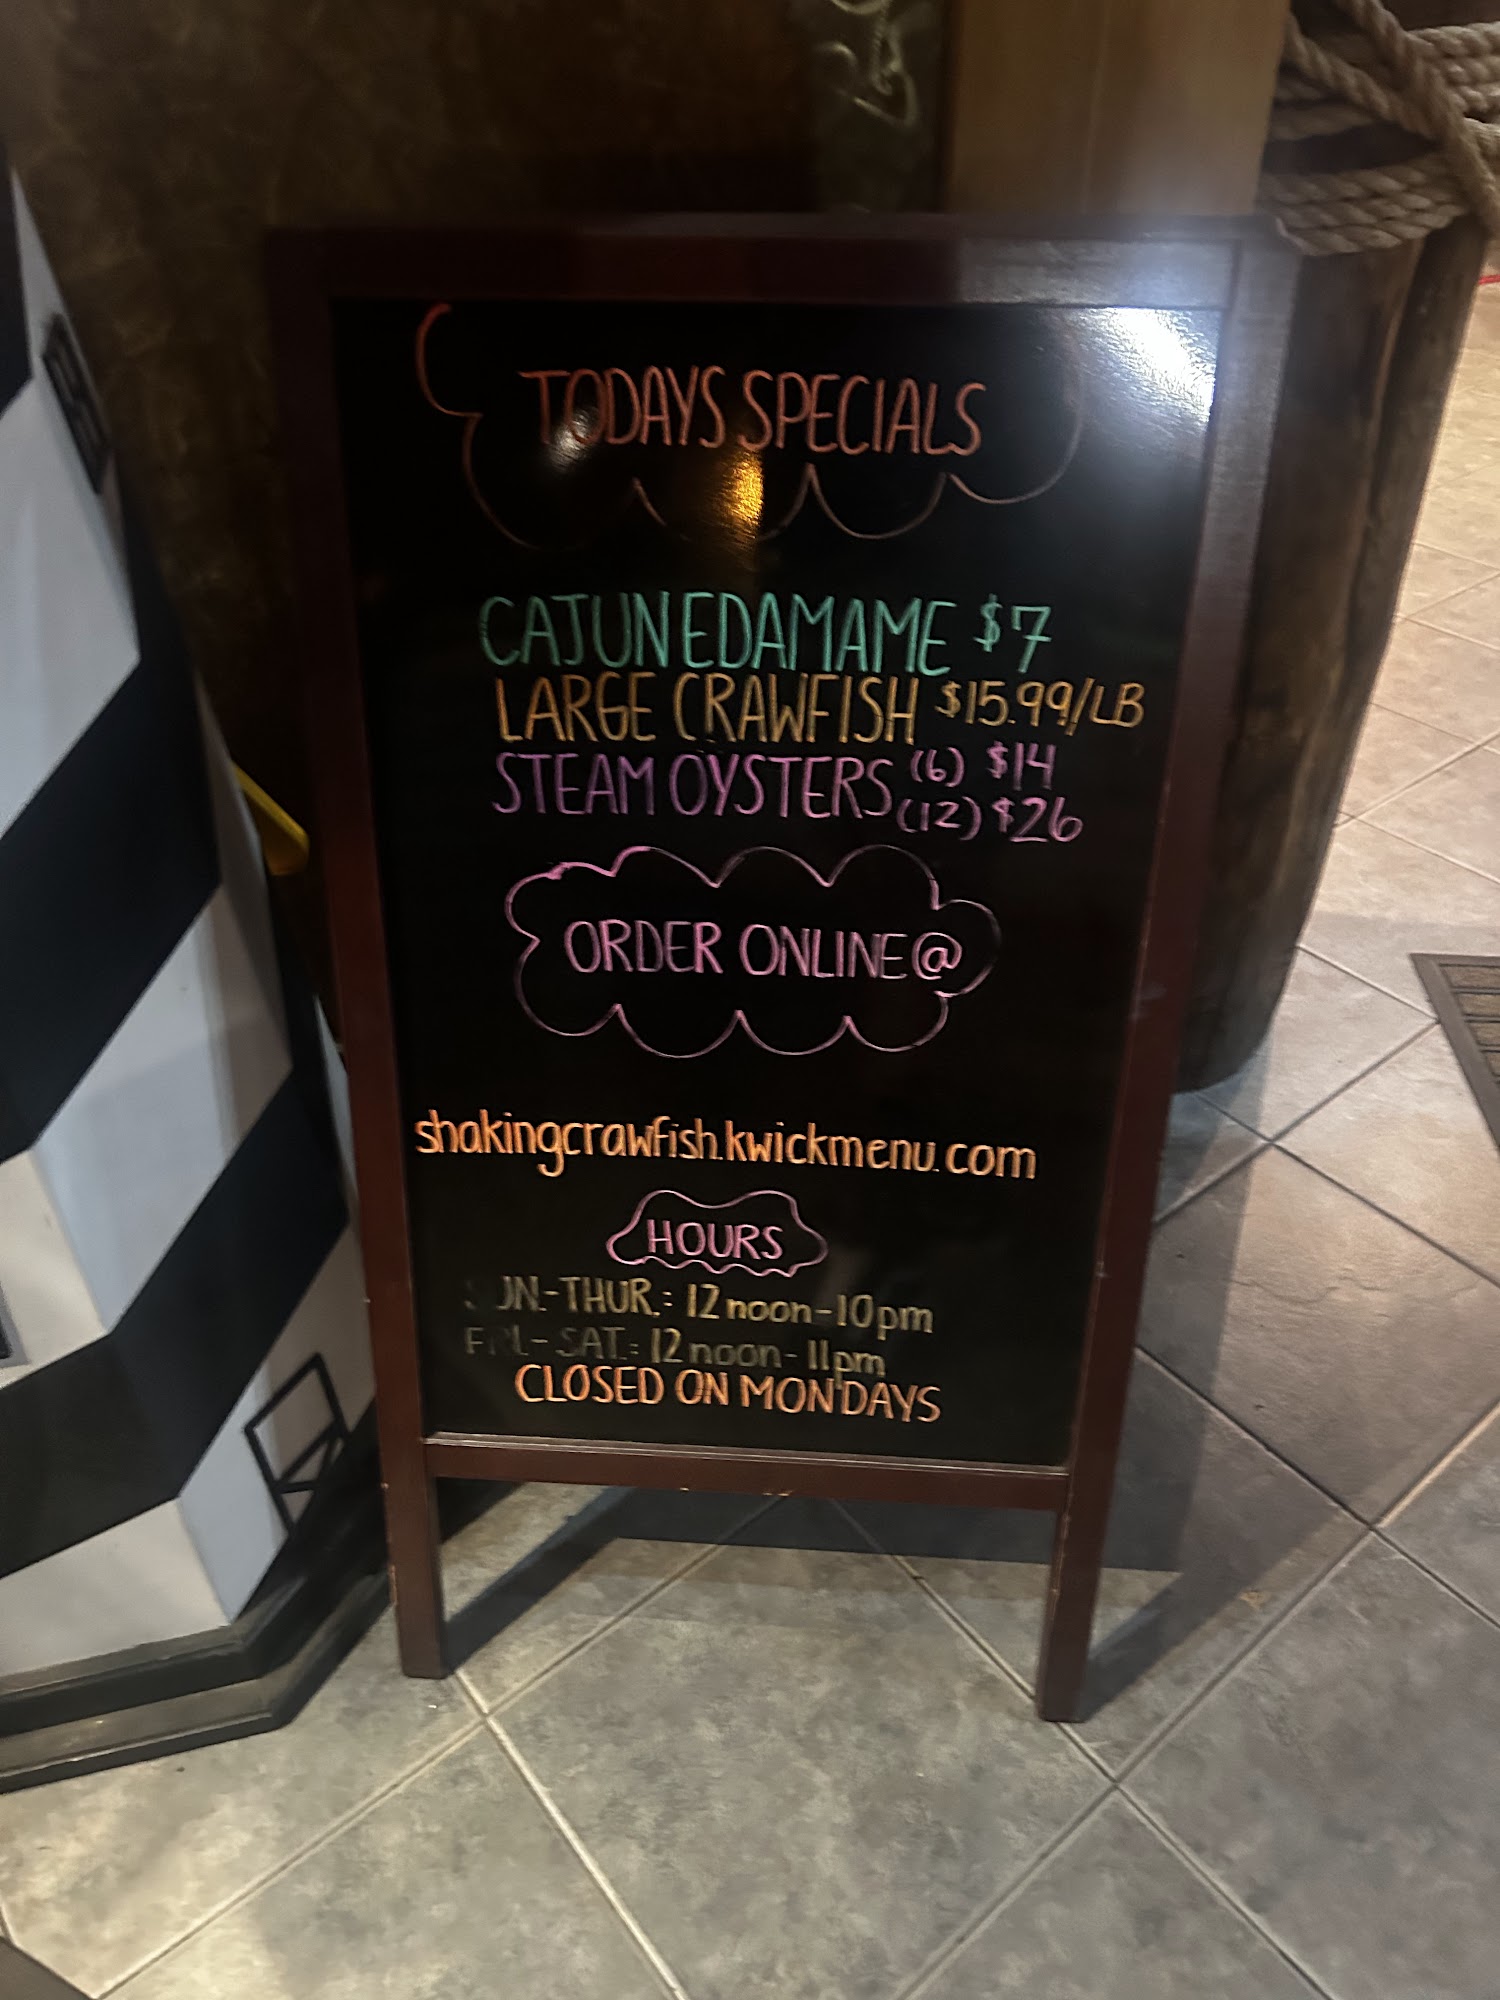 TODAYS SPECIALS
CAJUN EDAMAME $7
LARGE CRAWFISH $15.99/LB
STEAM OYSTERS (6) $14
(12) $26
ORDER ONLINE @
shakingcrawfish.kwickmenu.com
HOURS
SUN.-THUR.: 12 noon-10pm
FRI.-SAT.: 12 noon-11pm
CLOSED ON MONDAYS